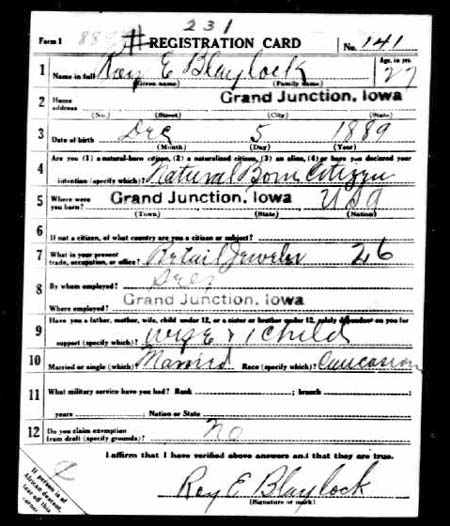 231
Form 1 REGISTRATION CARD No. 141
1 Name in full Roy E Blaylock Age, in yrs. 27
(Given name) (Family name)
2 Home address Grand Junction, Iowa
(No.) (Street) (City) (State)
3 Date of birth Dec 5 1889
(Month) (Day) (Year)
4 Are you (1) a natural-born citizen, (2) a naturalized citizen, (3) an alien, (4) or have you declared your
intention (specify which)? Natural Born Citizen
5 Where were you born? Grand Junction, Iowa USA
(Town) (State) (Nation)
6 If not a citizen, of what country are you a citizen or subject?
7 What is your present trade, occupation, or office? Retail Jeweler 26
8 By whom employed?
Where employed? Grand Junction, Iowa
9 Have you a father, mother, wife, child under 12, or a sister or brother under 12, solely dependent on you for
support (specify which)? Wife & 1 Child
10 Married or single (which)? Married Race (specify which)? Caucasian
11 What military service have you had? Rank ; branch ;
years ; Nation or State
12 Do you claim exemption from draft (specify grounds)? No
I affirm that I have verified above answers and that they are true.
Roy E Blaylock
(Signature or mark)
If person is of
African descent,
tear off this
corner